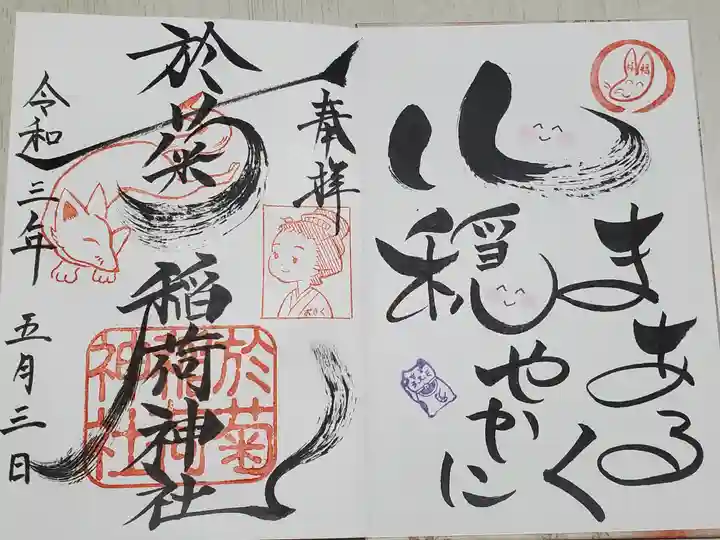 心
まあるく
穏やかに
奉拝
おきく
於菊
稲荷神社
於菊
稲荷
神社
令和三年 五月三日